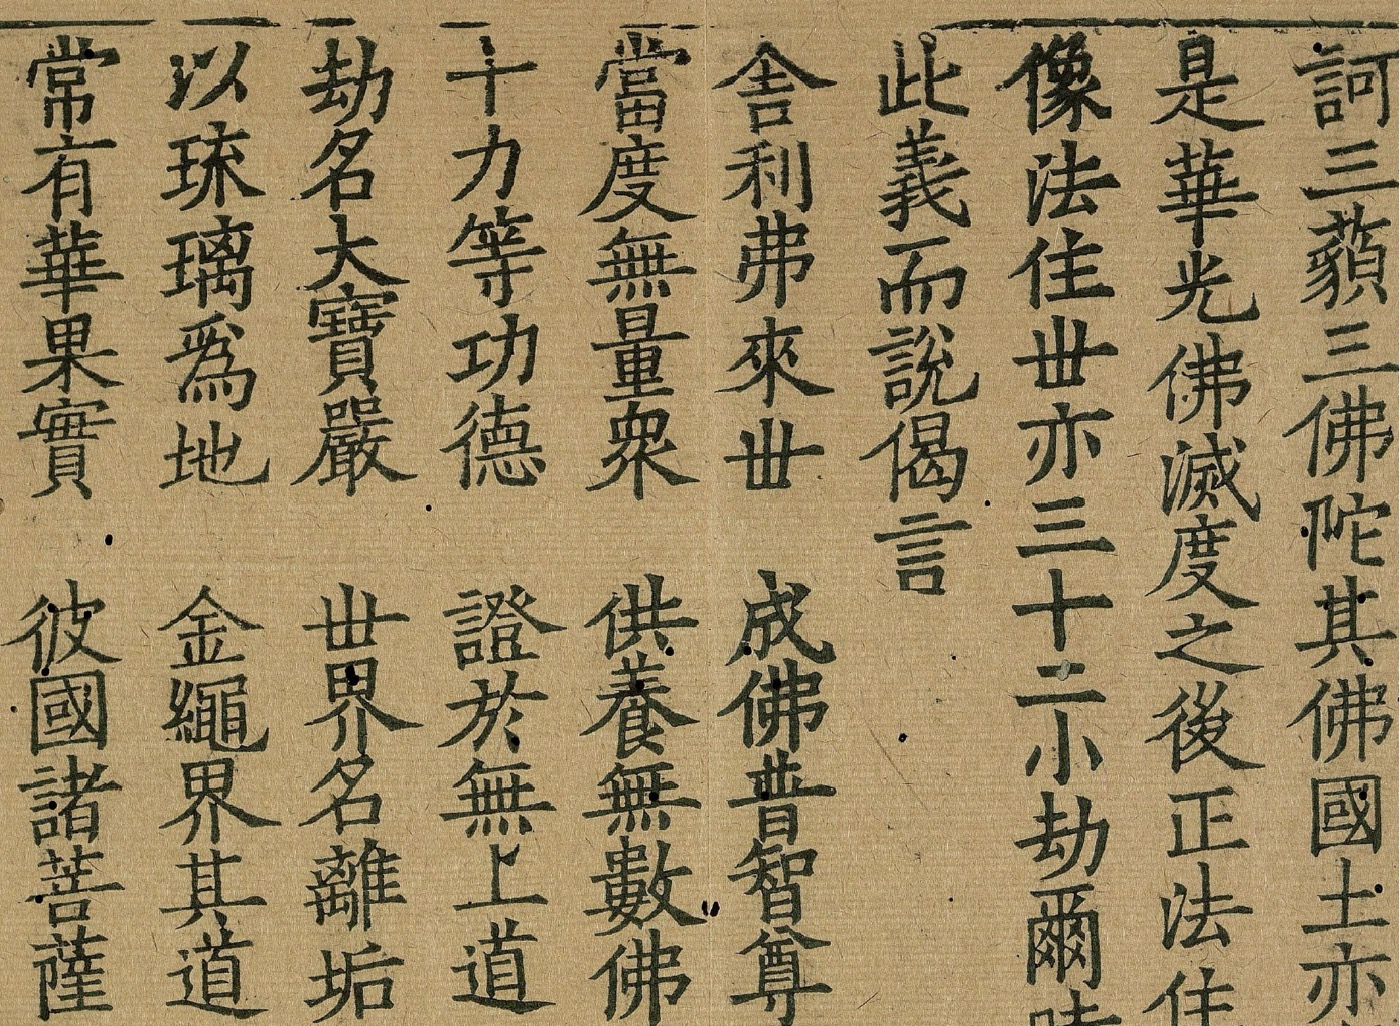 訶三藐三佛陀其佛國土亦
是華光佛滅度之後正法住
像法住丗亦三十二小劫爾時
此義而說偈言
舍利弗來丗 成佛普智尊
當度無量衆 供養無數佛
十力等功德 證於無上道
劫名大寶嚴 丗界名離垢
以琉璃爲地 金繩界其道
常有華果實 彼國諸菩薩